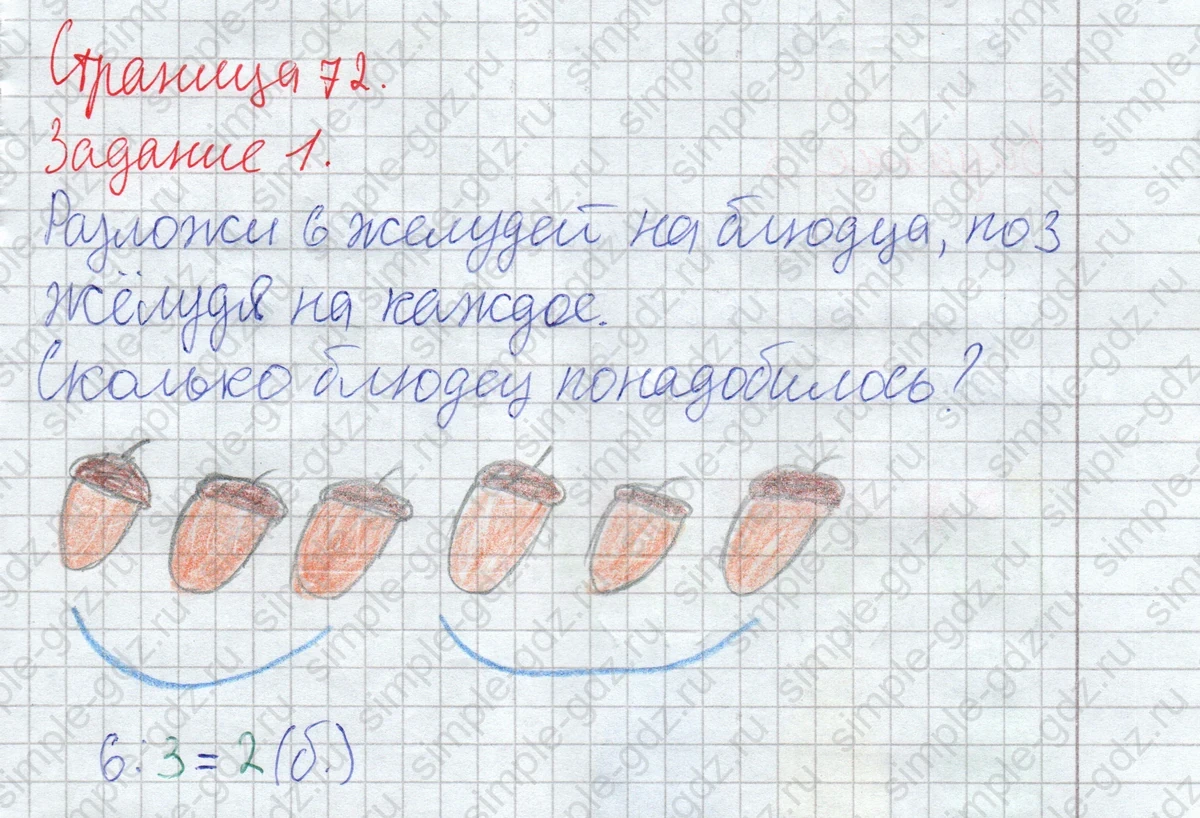 Страница 72.
Задание 1.
Разложи 6 желудей на блюдца, по 3
жёлудя на каждое.
Сколько блюдец понадобилось?
6:3=2(б.)
simple-gdz.ru